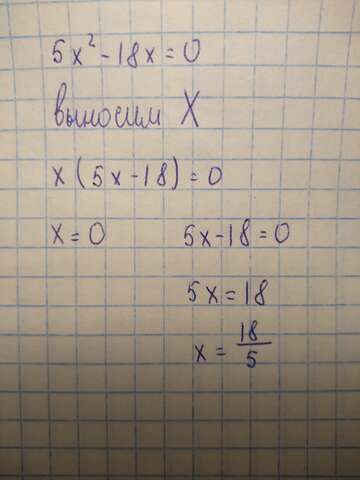 5x² - 18x = 0
выносим X
x (5x - 18) = 0
x = 0 5x - 18 = 0
5x = 18
x = 18/5